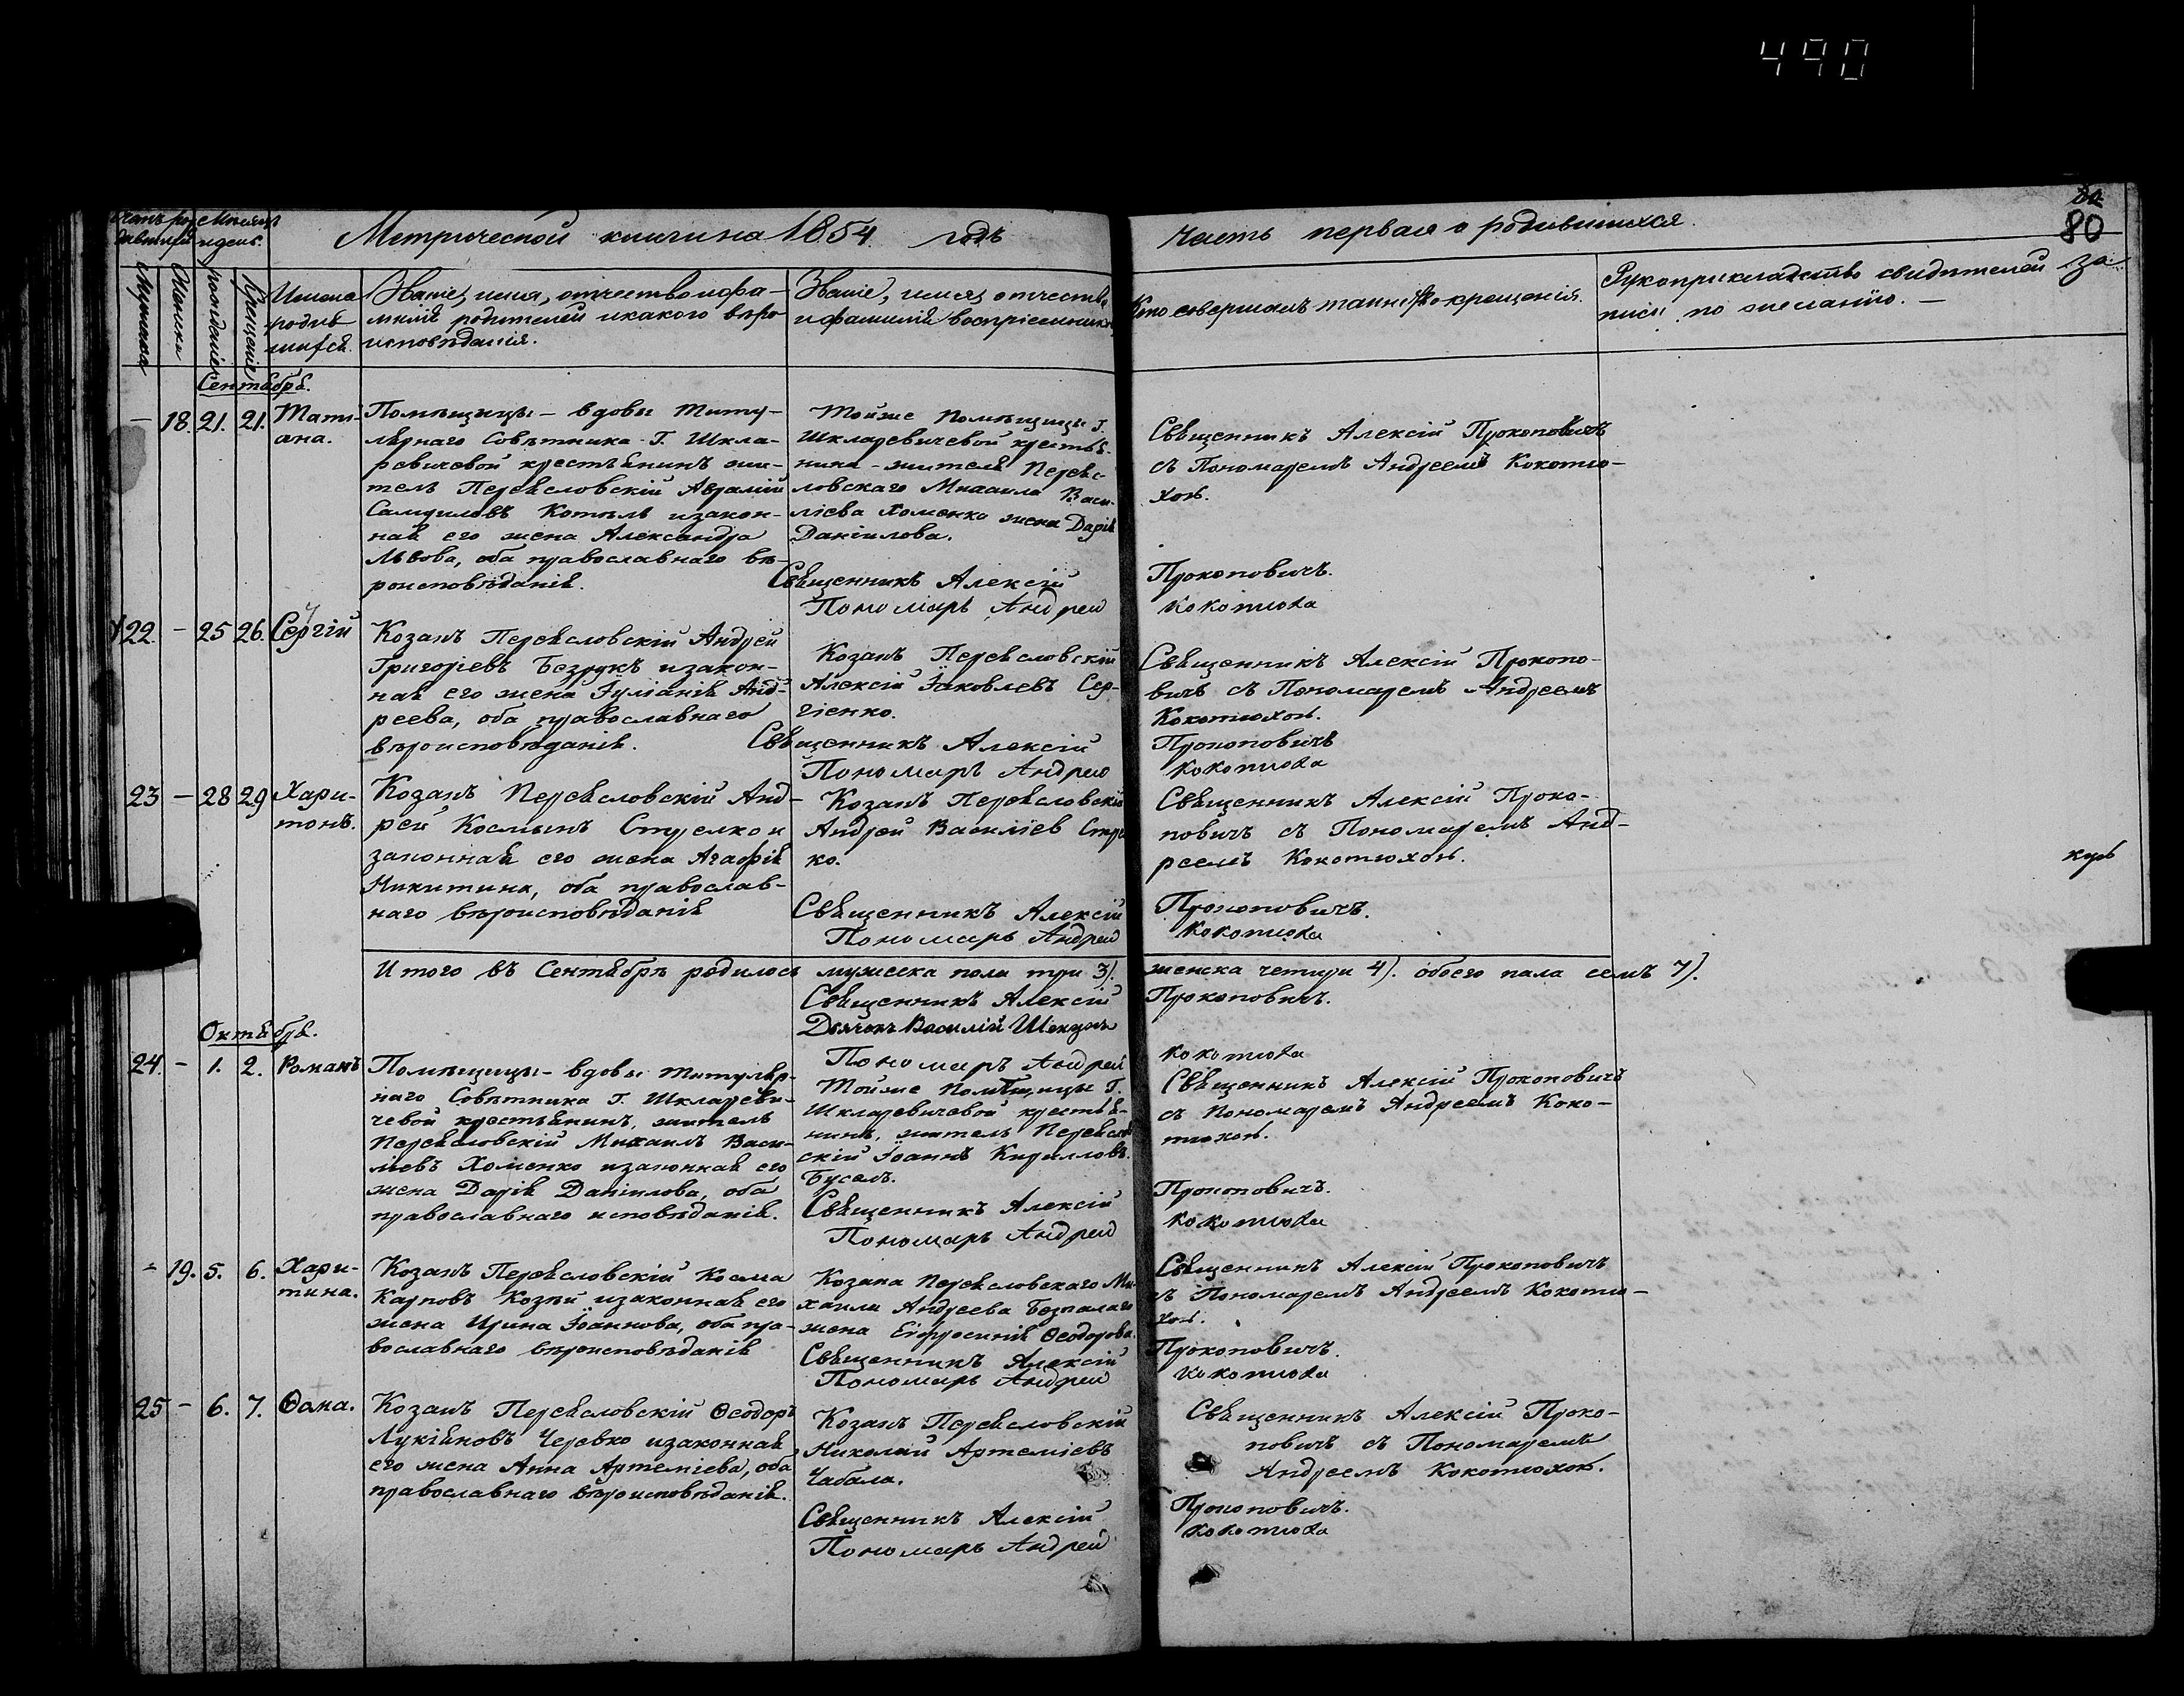 490
80
Метрической книги на 1854 годъ
часть первая о родившихся.
Мужеска
Женска
рожденіе
Крещеніе
Имена
родив-
шихся.
Званіе, имя, отчество и фа-
милія родителей и какого вѣро
исповѣданія.
Званіе, имя, отчество
и фамилія воспріемников
Кто совершалъ таинство крещенія.
Рукоприкладство свидѣтелей за-
писи по желанію. —
Сентября.
— 18. 21. 21. Тати-
ана.
Помѣщицы - вдовы Титу-
лярнаго Совѣтника Г. Шкля-
ревичевой крестьянинъ жи-
тель Переясловскій Авраамій
Самуиловъ Котъль и закон-
ная его жена Александра
Львова, оба православнаго вѣ-
роисповѣданія.
Тойже Помѣщицы Г.
Шкляревичевой крестья-
нина - жителя Перес-
ловскаго Михаила Васи-
ліева Хоменко жена Дарія
Даніилова.
Священникъ Алексій
Пономарь Андрей
Священникъ Алексій Прокоповичъ
съ Пономаремъ Андреемъ Кокотю-
хой.
Прокоповичъ.
Кокотюха
22 — 25 26. Сергій
Козакъ Переясловскій Андрей
Григоріевъ Безрукъ и закон-
ная его жена Іуліанія Анд-
реева, оба православнаго
вѣроисповѣданія.
Козакъ Переясловскій
Алексій Іаковлевъ Сер-
гіенко.
Священникъ Алексій
Пономарь Андрей
Священникъ Алексій Прокопо-
вичъ съ Пономаремъ Андреемъ
Кокотюхой.
Прокоповичъ
Кокотюха
23 — 28 29 Хари-
тонъ.
Козакъ Переясловскій Анд-
рей Космынъ Стрелко и
законная его жена Агафія
Никитина, оба православ-
наго вѣроисповѣданія
Козакъ Переясловскій
Андрей Василіев Стре
ко.
Священникъ Алексій
Пономарь Андрей
Священникъ Алексій Проко-
повичъ съ Пономаремъ Анд-
реемъ Кокотюхой.
Прокоповичъ.
Кокотюха
Итого въ Сентябрѣ родилось мужеска пола три 3). женска четыри 4). обоего пола семъ 7).
Священникъ Алексій Прокоповичъ.
Дьячокъ Василій
Пономарь Андрей Кокотюха
Октября.
24. — 1. 2. Романъ
Помѣщицы - вдовы Титуляр-
наго Совѣтника Г. Шкляреви-
чевой крестьянинъ, житель
Переясловскій Михаилъ Васи-
ліевъ Хоменко и законная его
жена Дарія Даніилова, оба
православнаго исповѣданія.
Тойже Помѣщицы Г.
Шкляревичевой крестья-
нинъ, житель Переяслов
скій Іоаннъ Кирилловъ
Бусель.
Священникъ Алексій
Пономарь Андрей
Священникъ Алексій Прокоповичъ
съ Пономаремъ Андреемъ Коко-
тюхой.
Прокоповичъ.
Кокотюха
— 19. 5. 6. Хари-
тина.
Козакъ Переясловскій Косма
Карповъ Козѣй и законная его
жена Ирина Іоаннова, оба пра-
вославнаго вѣроисповѣданія
Козака Переясловскаго Ми-
хаила Андреева Безпалаго
жена Евфросинія Ѳеодорова.
Священникъ Алексій
Пономарь Андрей
Священникъ Алексій Прокоповичъ
съ Пономаремъ Андреемъ Кокотю-
хой.
Прокоповичъ.
Кокотюха
25 — 6. 7. Ѳома.
Козакъ Переясловскій Ѳеодоръ
Лукіяновъ Черевко и законная
его жена Анна Артеміева, оба
православнаго вѣроисповѣданія.
Козакъ Переясловскій
Николай Артеміевъ
Чабала.
Священникъ Алексій
Пономарь Андрей
Священникъ Алексій Проко-
повичъ съ Пономаремъ
Андреемъ Кокотюхой.
Прокоповичъ.
Кокотюха